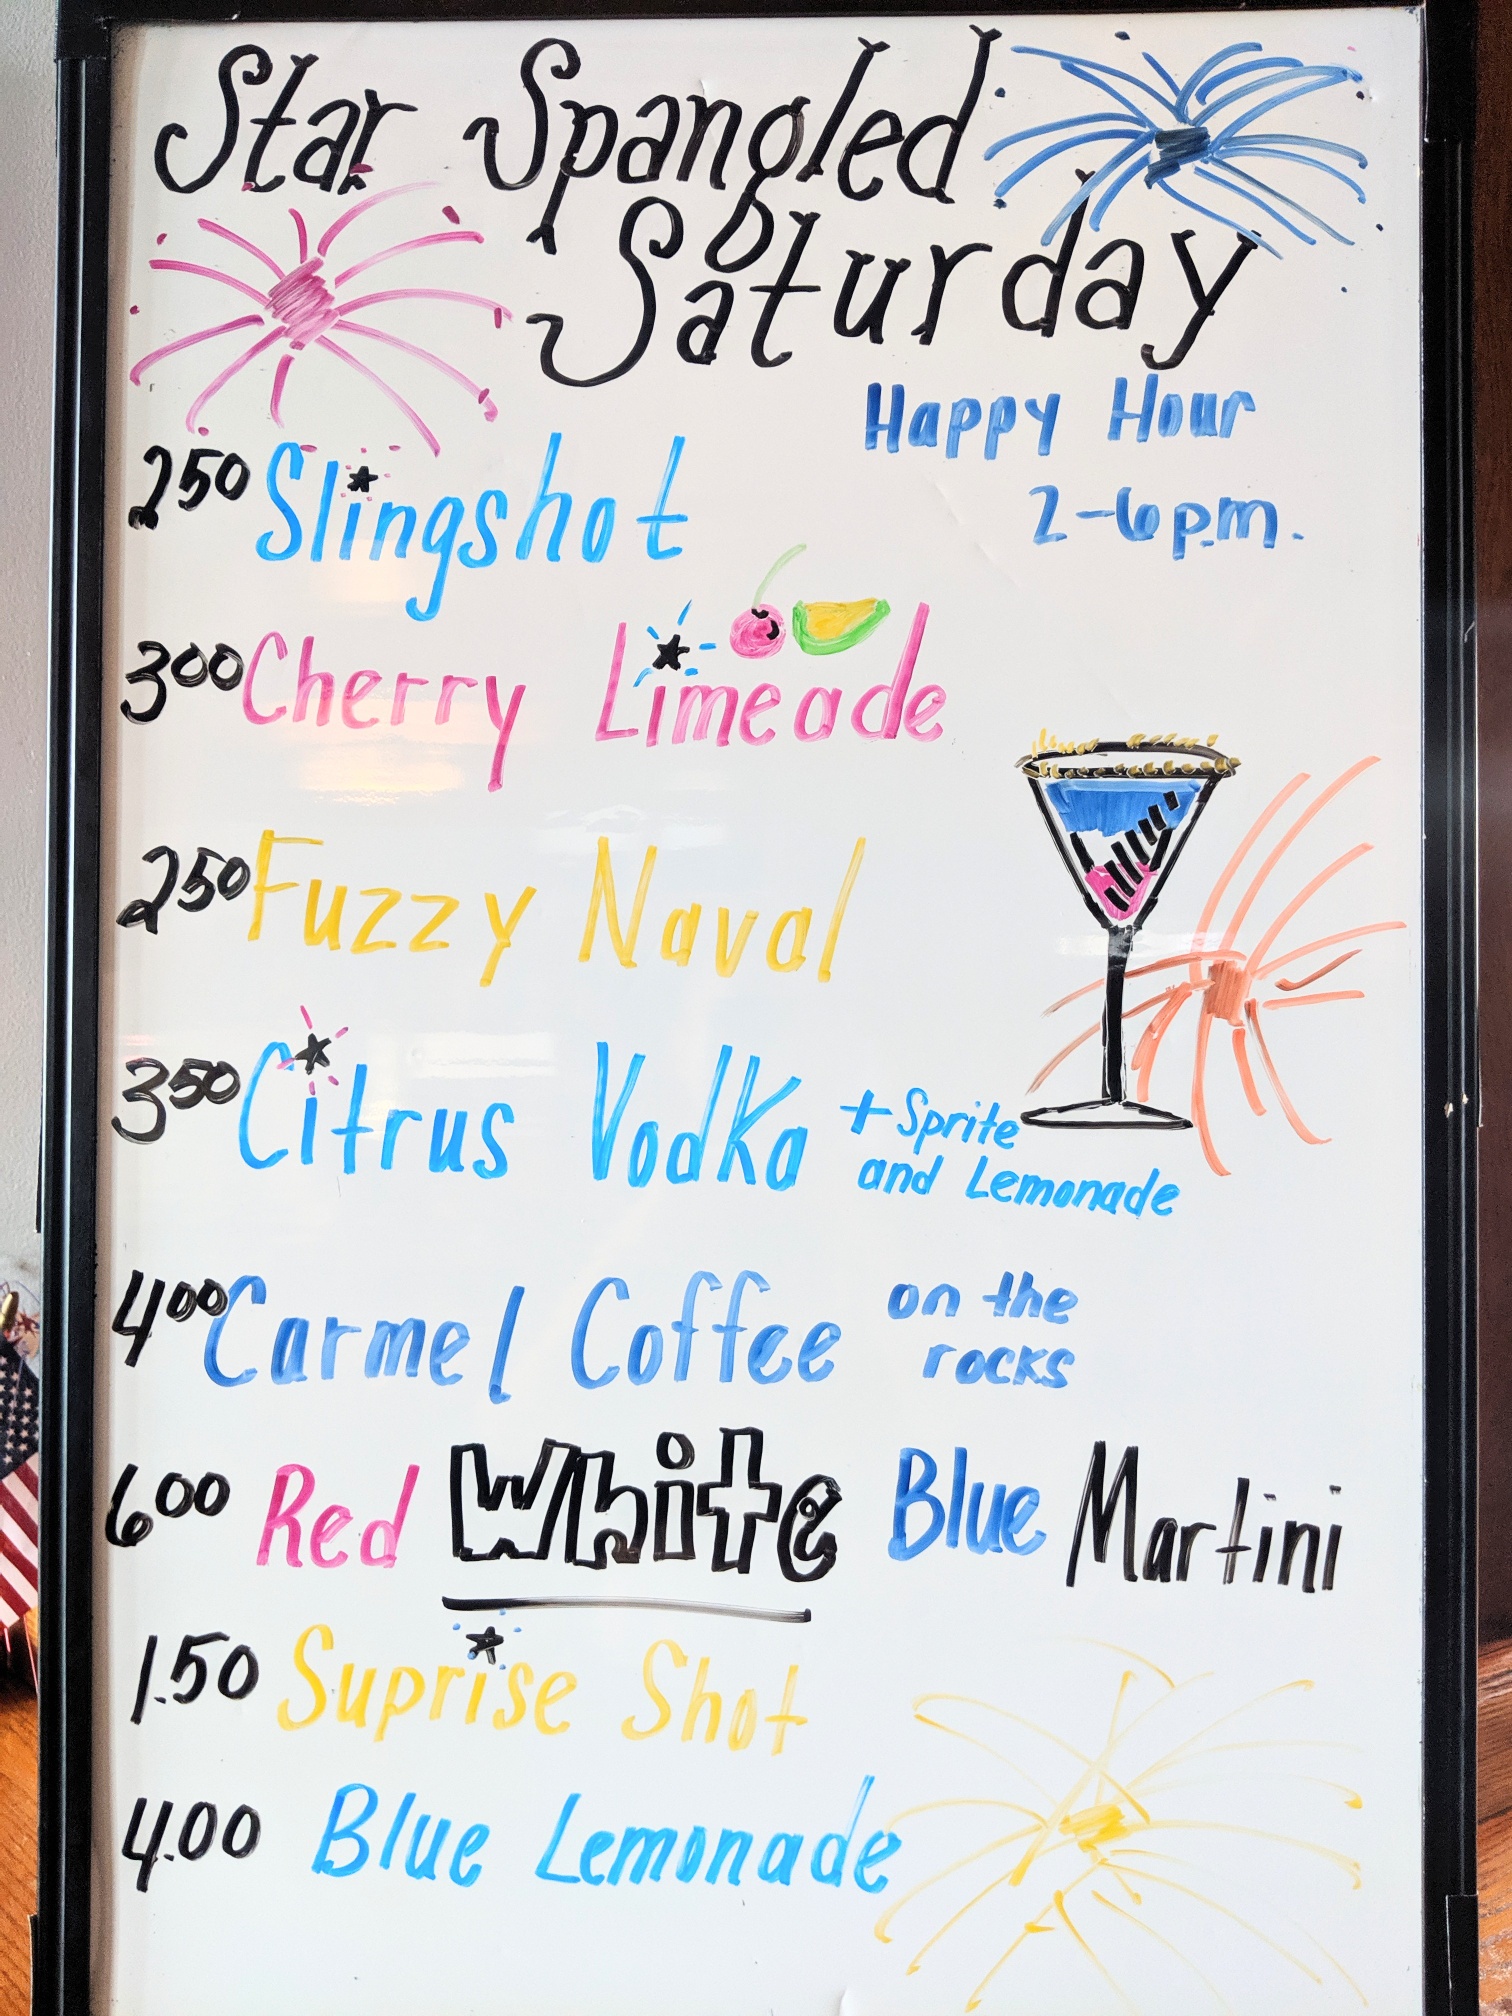 Star Spangled
Saturday
Happy Hour
2-6 p.m.
2.50 Slingshot
3.00 Cherry Limeade
2.50 Fuzzy Naval
3.50 Citrus Vodka + Sprite
and Lemonade
4.00 Carmel Coffee on the
rocks
6.00 Red White Blue Martini
1.50 Suprise Shot
4.00 Blue Lemonade